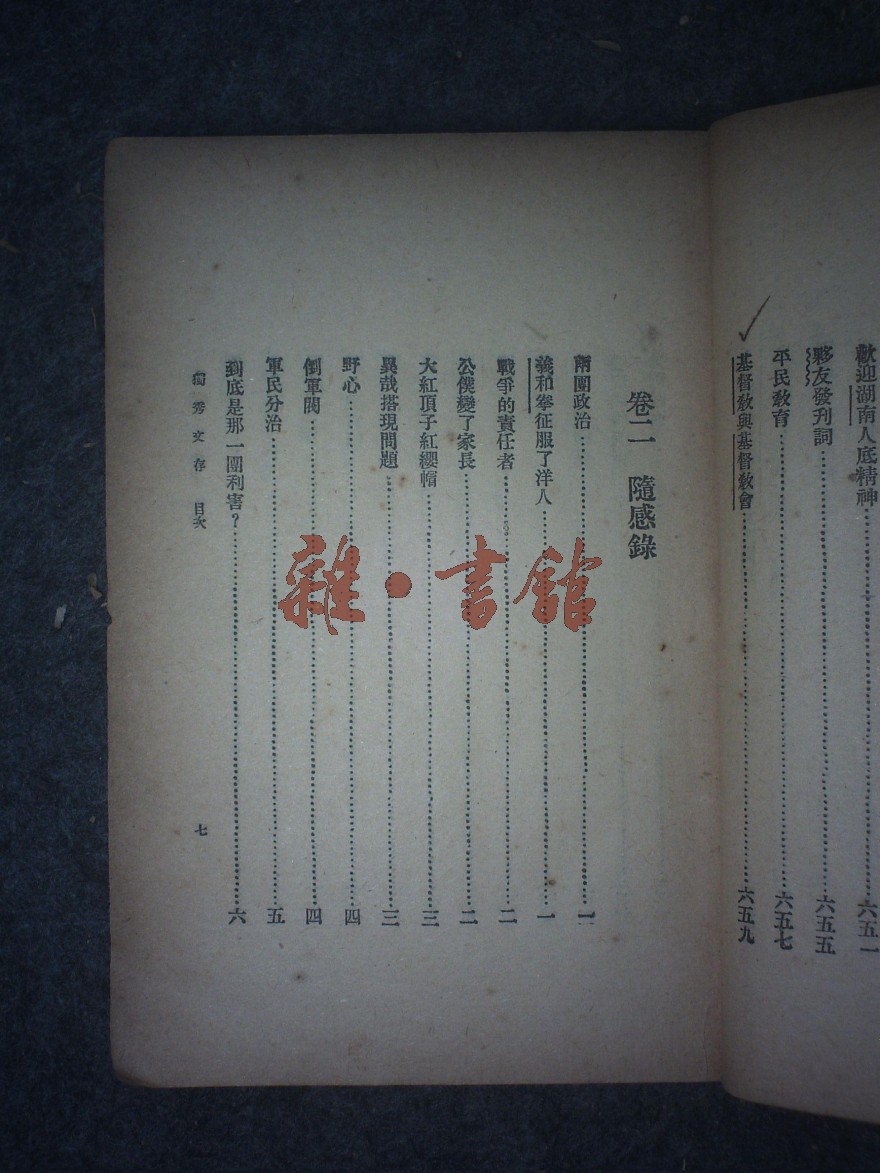 歡迎湖南人底精神……六五一
夥友發刊詞……六五五
平民教育……六五七
基督教與基督教會……六五九
卷二 隨感錄
兩團政治……一
義和拳征服了洋人……一
戰爭的責任者……二
公僕變了家長……二
大紅頂子紅纓帽……三
異哉搭現問題……三
野心……四
倒軍閥……四
軍民分治……五
到底是那一團利害？……六
獨秀文存 目次
七
雜·書館